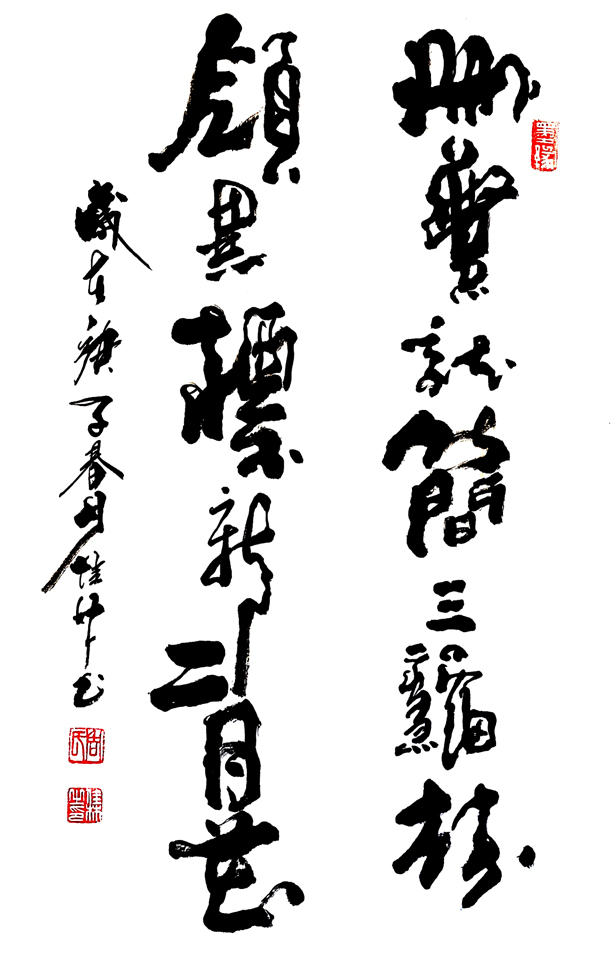 刪繁就簡三龝樹
領異標新二月花
歲在庚子春月書